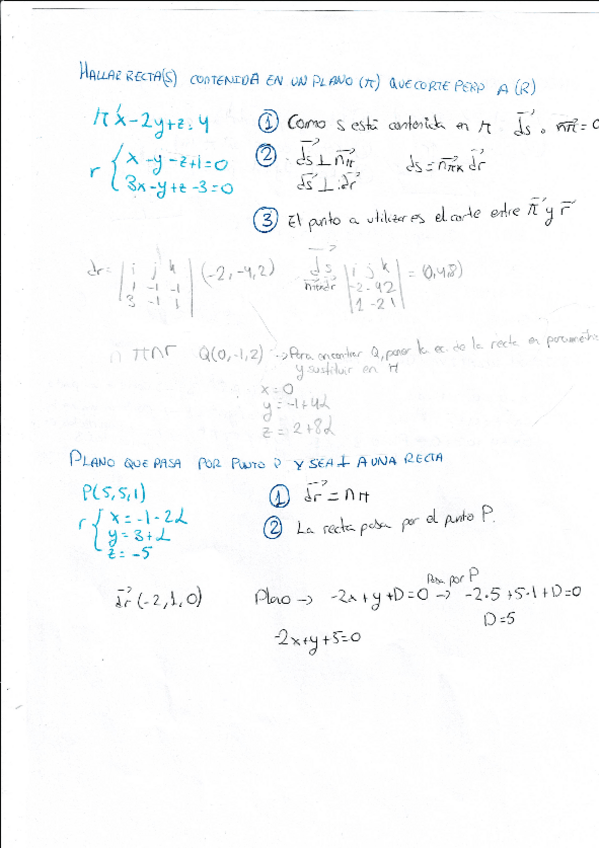 HALLAR RECTA(S) CONTENIDA EN UN PLANO (π) QUE CORTE PERP A (R)
π x-2y+z=4
r { x-y-z+1=0
3x-y+z-3=0
① Como s está contenida en π ds · nπ = 0
② ds ⊥ nπ ds = nπ x dr
ds ⊥ dr
③ El punto a utilizar es el corte entre π y r
dr = | i j k | (-2,-4,2)
1 -1 -1
3 -1 1
ds | i j k | = (0,4,8)
nπxdr -2 -4 2
1 -2 1
π∩r Q(0,-1,2) -> Para encontrar Q, poner la ec. de la recta en paramétricas
y sustituir en π
x = 0
y = -1+4λ
z = 2+8λ
PLANO QUE PASA POR PUNTO P Y SEA ⊥ A UNA RECTA
P(5,5,1)
r { x = -1-2λ
y = 3+λ
z = -5
① dr = nπ
② La recta pasa por el punto P.
dr (-2,1,0) Plano -> -2x+y+D=0 Pasa por P -> -2·5+5·1+D=0
D=5
-2x+y+5=0